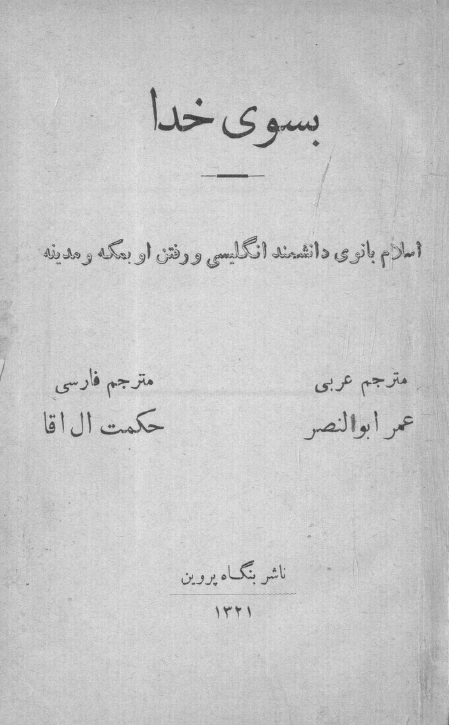 بسوی خدا
اسلام بانوی دانشمند انگلیسی و رفتن او بمکه و مدینه
مترجم عربی
عمر ابوالنصر
مترجم فارسی
حکمت ال اقا
ناشر بنگاه پروین
۱۳۲۱